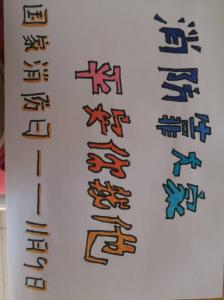 消防靠大家
平安你我他
国家消防日——11月9日